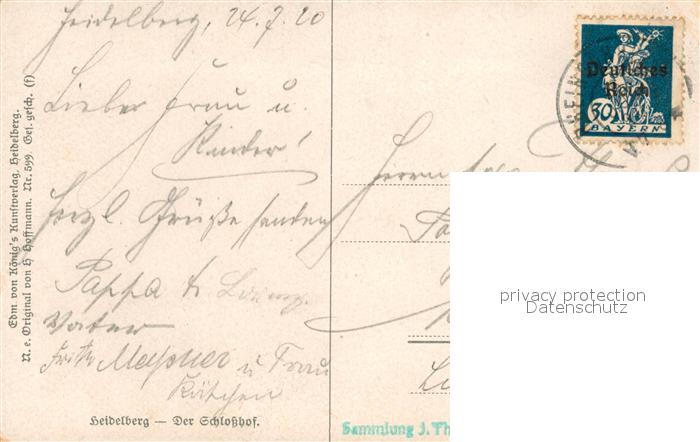 Heidelberg, 24.7.20
Liebe Frau u.
Kinder!
Herzl. Grüße senden
Pappa
Vater
Fritz u Frau
Kätchen
Heidelberg — Der Schloßhof.
Edm. von König's Kunstverlag, Heidelberg.
N. e. Original von H Hoffmann. Nr. 599. Ges. gesch. (f)
Deutsches
Reich
30
BAYERN
Herrn
privacy protection
Datenschutz
Sammlung J. Th